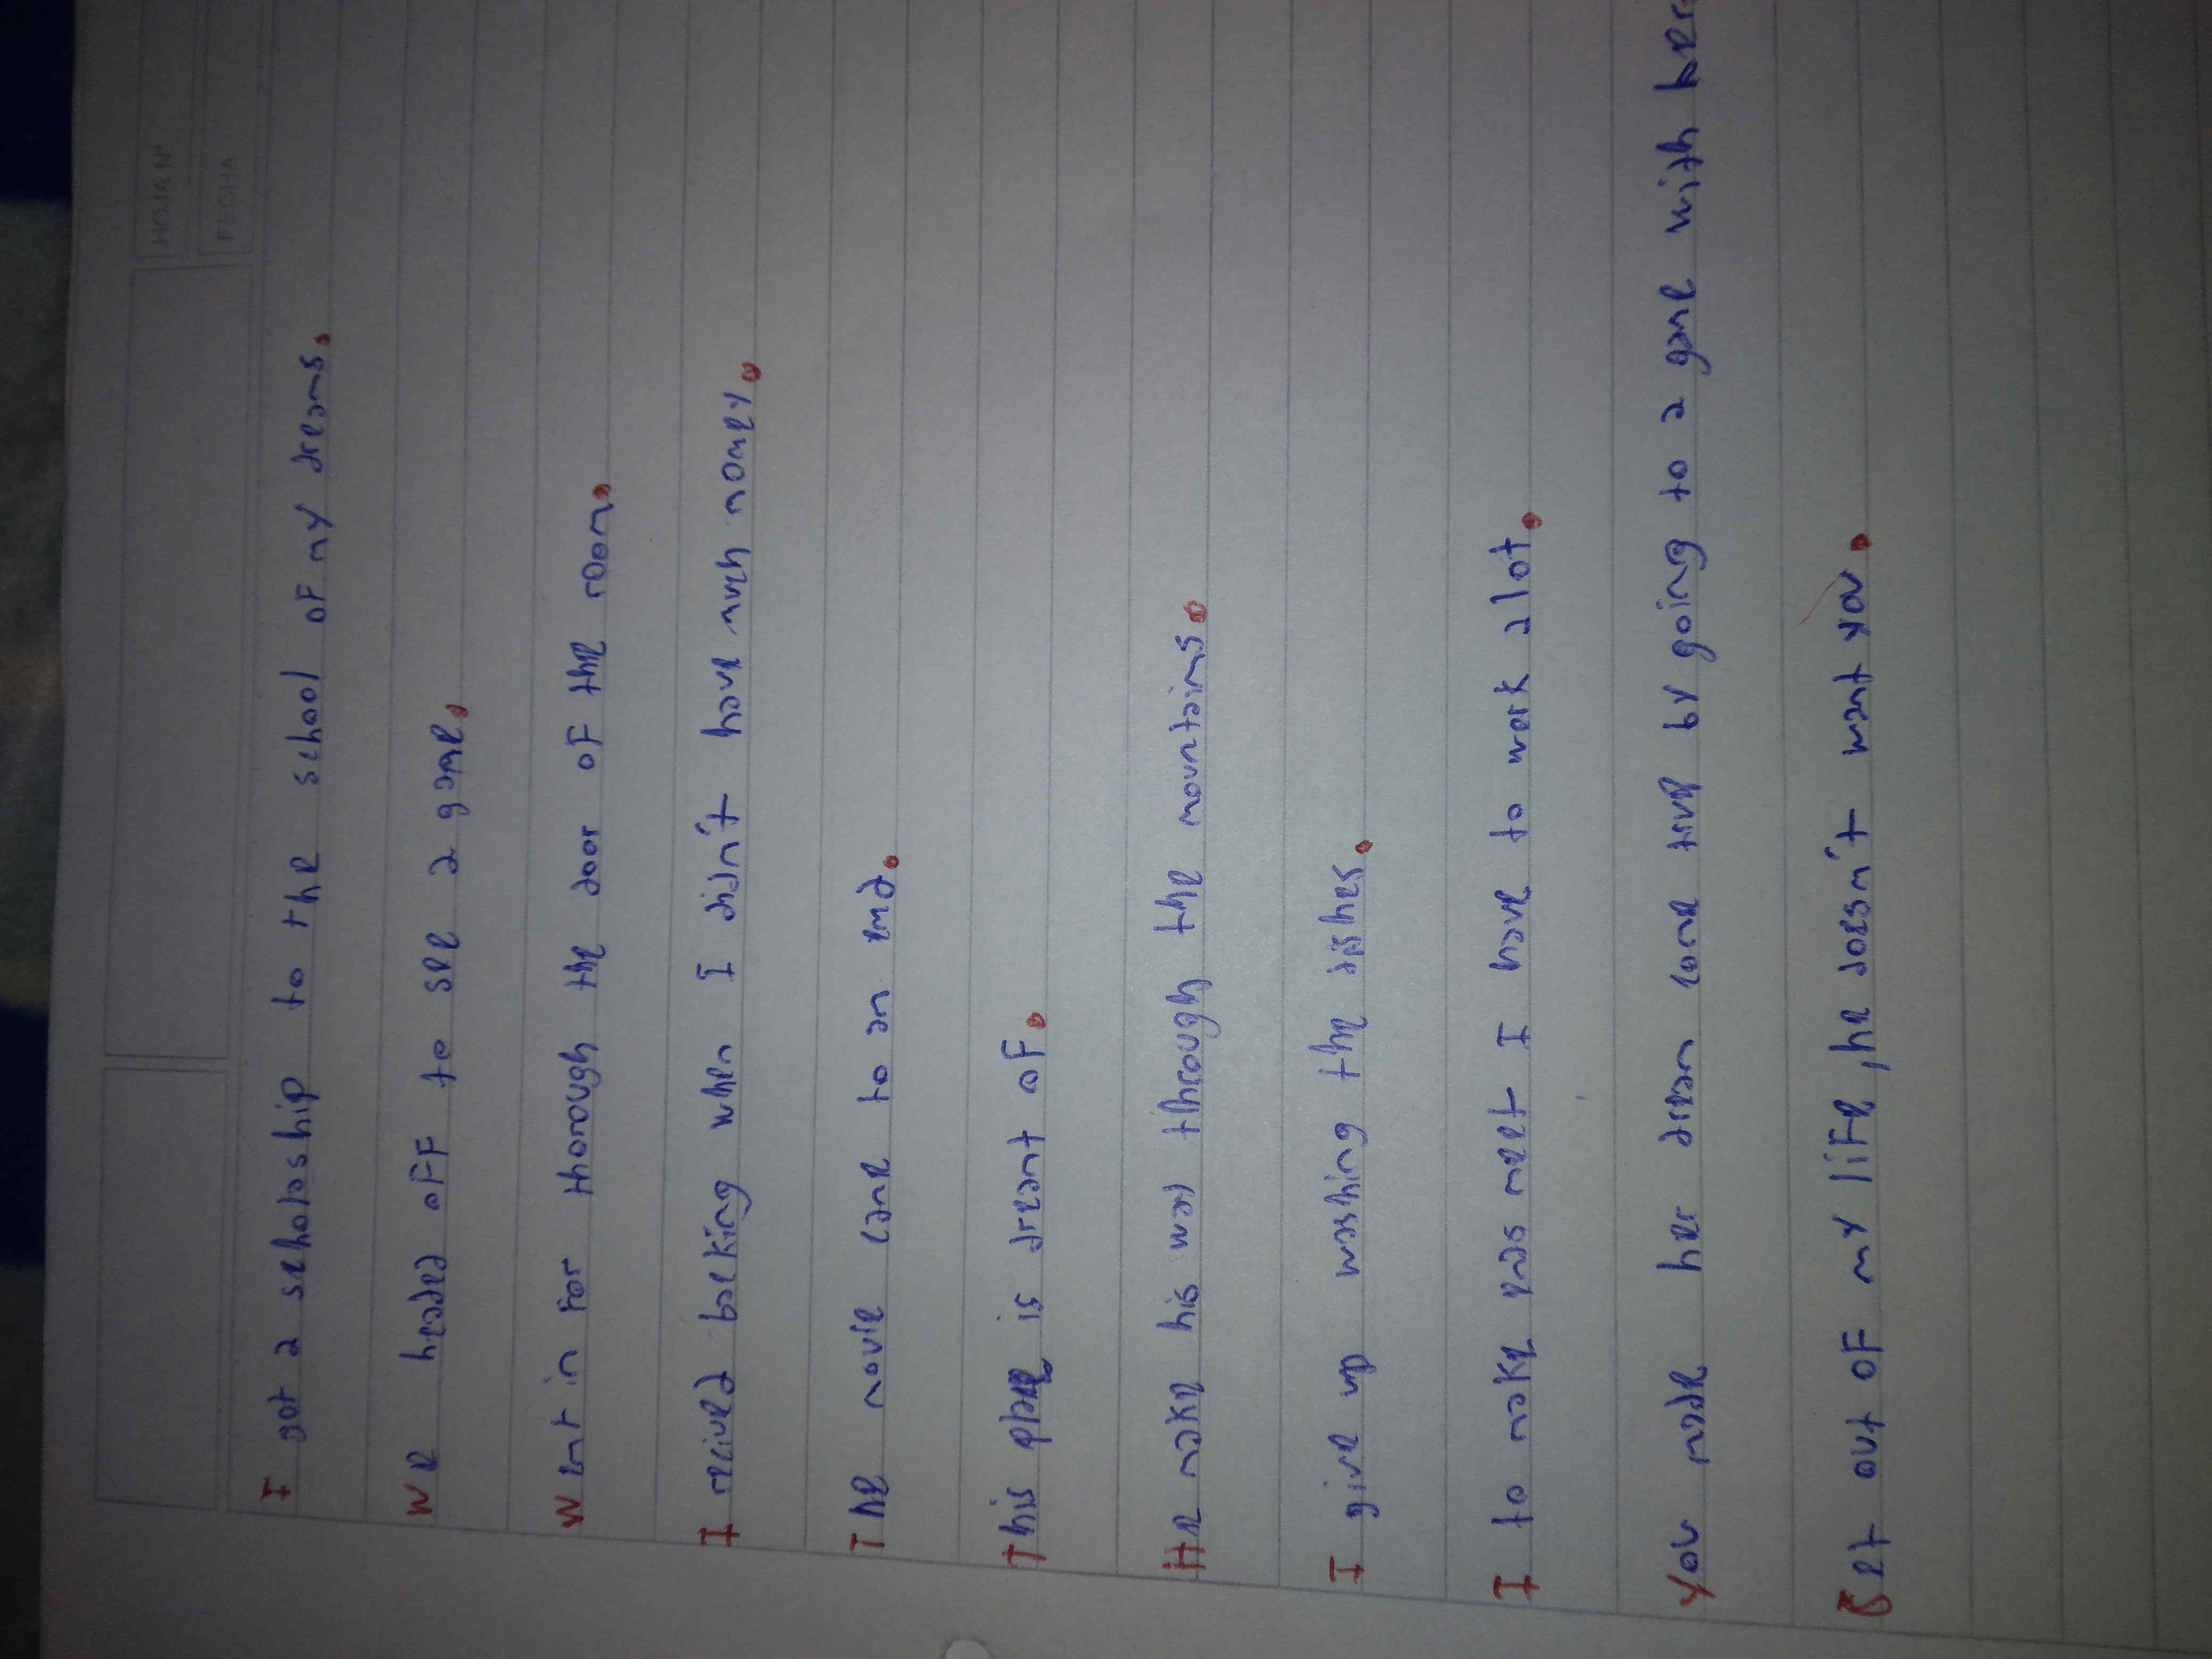 HOJA N°
FECHA
I got a scholoship to the school of my dreams.
We headed off to see a game.
Went in for thorough the door of the room.
I recived backing when I didn't have much money.
The movie came to an end.
This place is dreamt of.
He make his way through the mountains.
I give up washing the dishes.
I to make ends meet I have to work a lot.
You made her dream come true by going to a game with her.
Get out of my life, he doesn't want you.